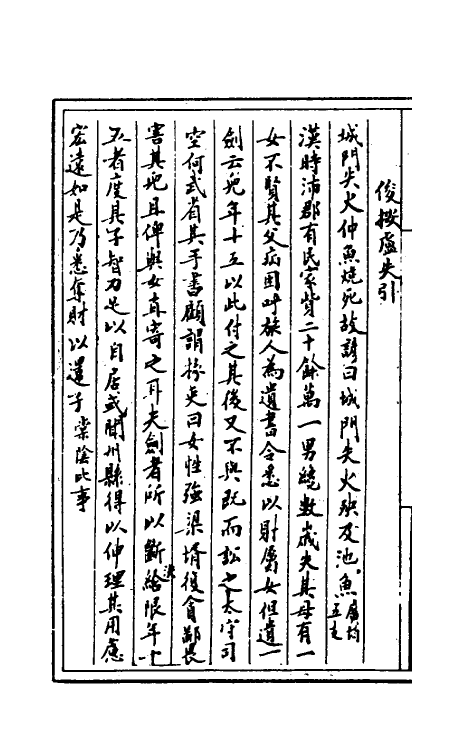 俊按盧失引
城門失火仲魚燒死故諺曰城門失火殃及池魚廣韵五支
漢時沛郡有民家貲二十餘萬一男纔數歲失其母有一
女不賢其父病困呼族人為遺書令悉以財屬女但遺一
劍云兒年十五以此付之其後又不與既而訟之太守司
空何武省其手書顧謂掾史曰女性強梁壻復貪鄙畏
害其兒且俾與女直寄之耳夫劍者所以斷決限年十
五者度其子智力足以自居或聞州縣得以伸理其用慮
宏遠如是乃悉奪財以還子棠陰比事